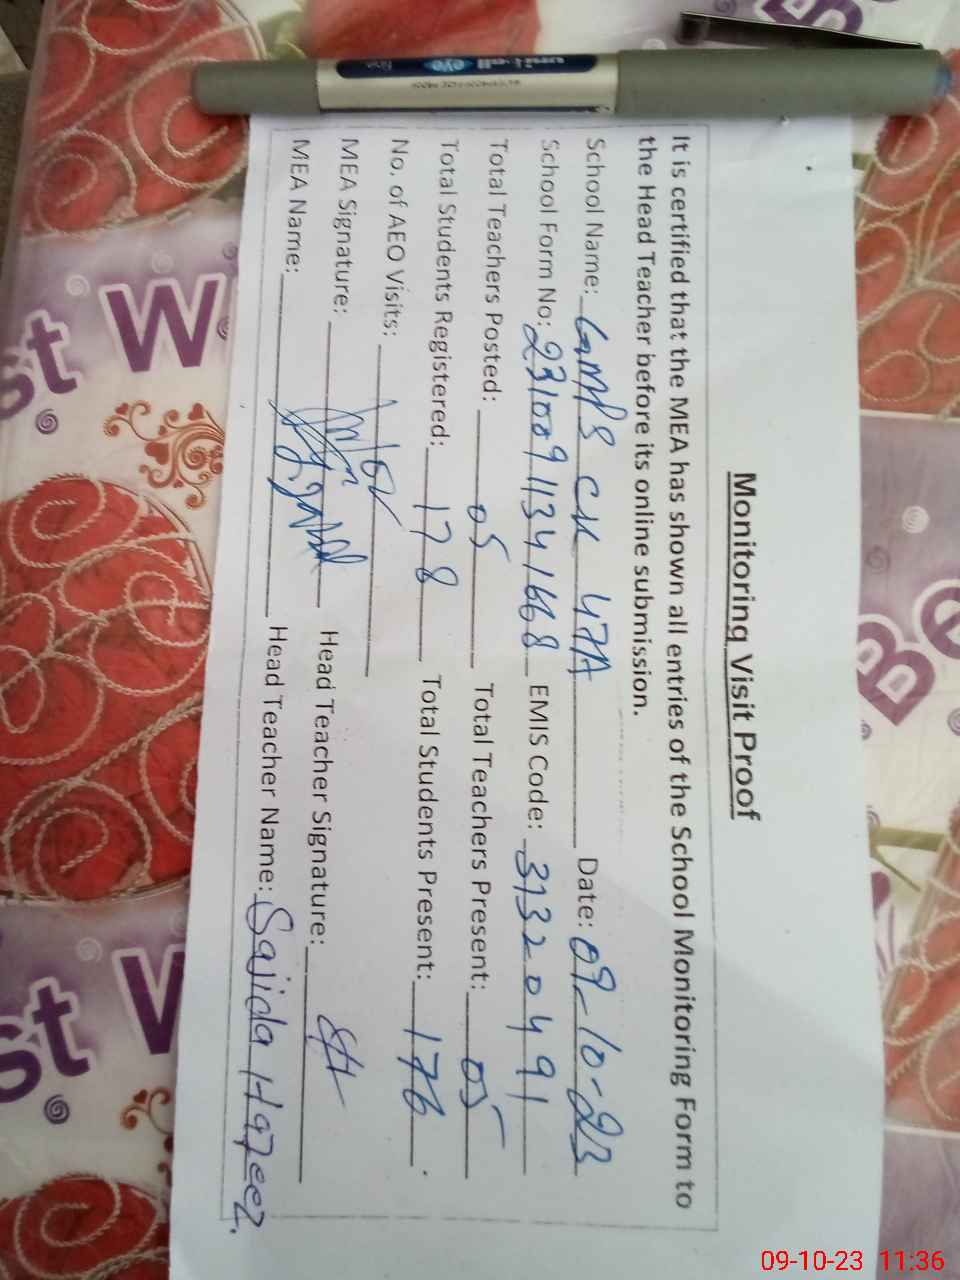 Monitoring Visit Proof
It is certified that the MEA has shown all entries of the School Monitoring Form to
the Head Teacher before its online submission.
School Name: GMPS CK 47A Date: 09-10-23
School Form No: 231009 1134 1668 EMIS Code: 31320491
Total Teachers Posted: 05 Total Teachers Present: 05
Total Students Registered: 178 Total Students Present: 176
No. of AEO Visits:
MEA Signature: Head Teacher Signature:
MEA Name: Head Teacher Name: Sajida Hafeez.
uni-ball eye fine
st W
Be
B
st W
09-10-23 11:36